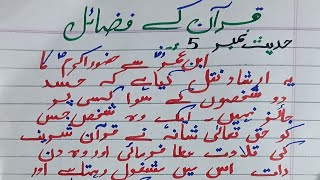 قرآن کے فضائل
حدیث نمبر 5
ابن عمرؓ سے حضور اکرمؐ کا
یہ ارشاد نقل کیا ہے کہ حسد
دو شخصوں کے سوا کسی پر
جائز نہیں۔ ایک وہ شخص جس
کو حق تعالیٰ شانہٗ نے قرآن شریف
کی تلاوت عطا فرمائی اور وہ دن
رات اس میں مشغول رہتا ہے اور